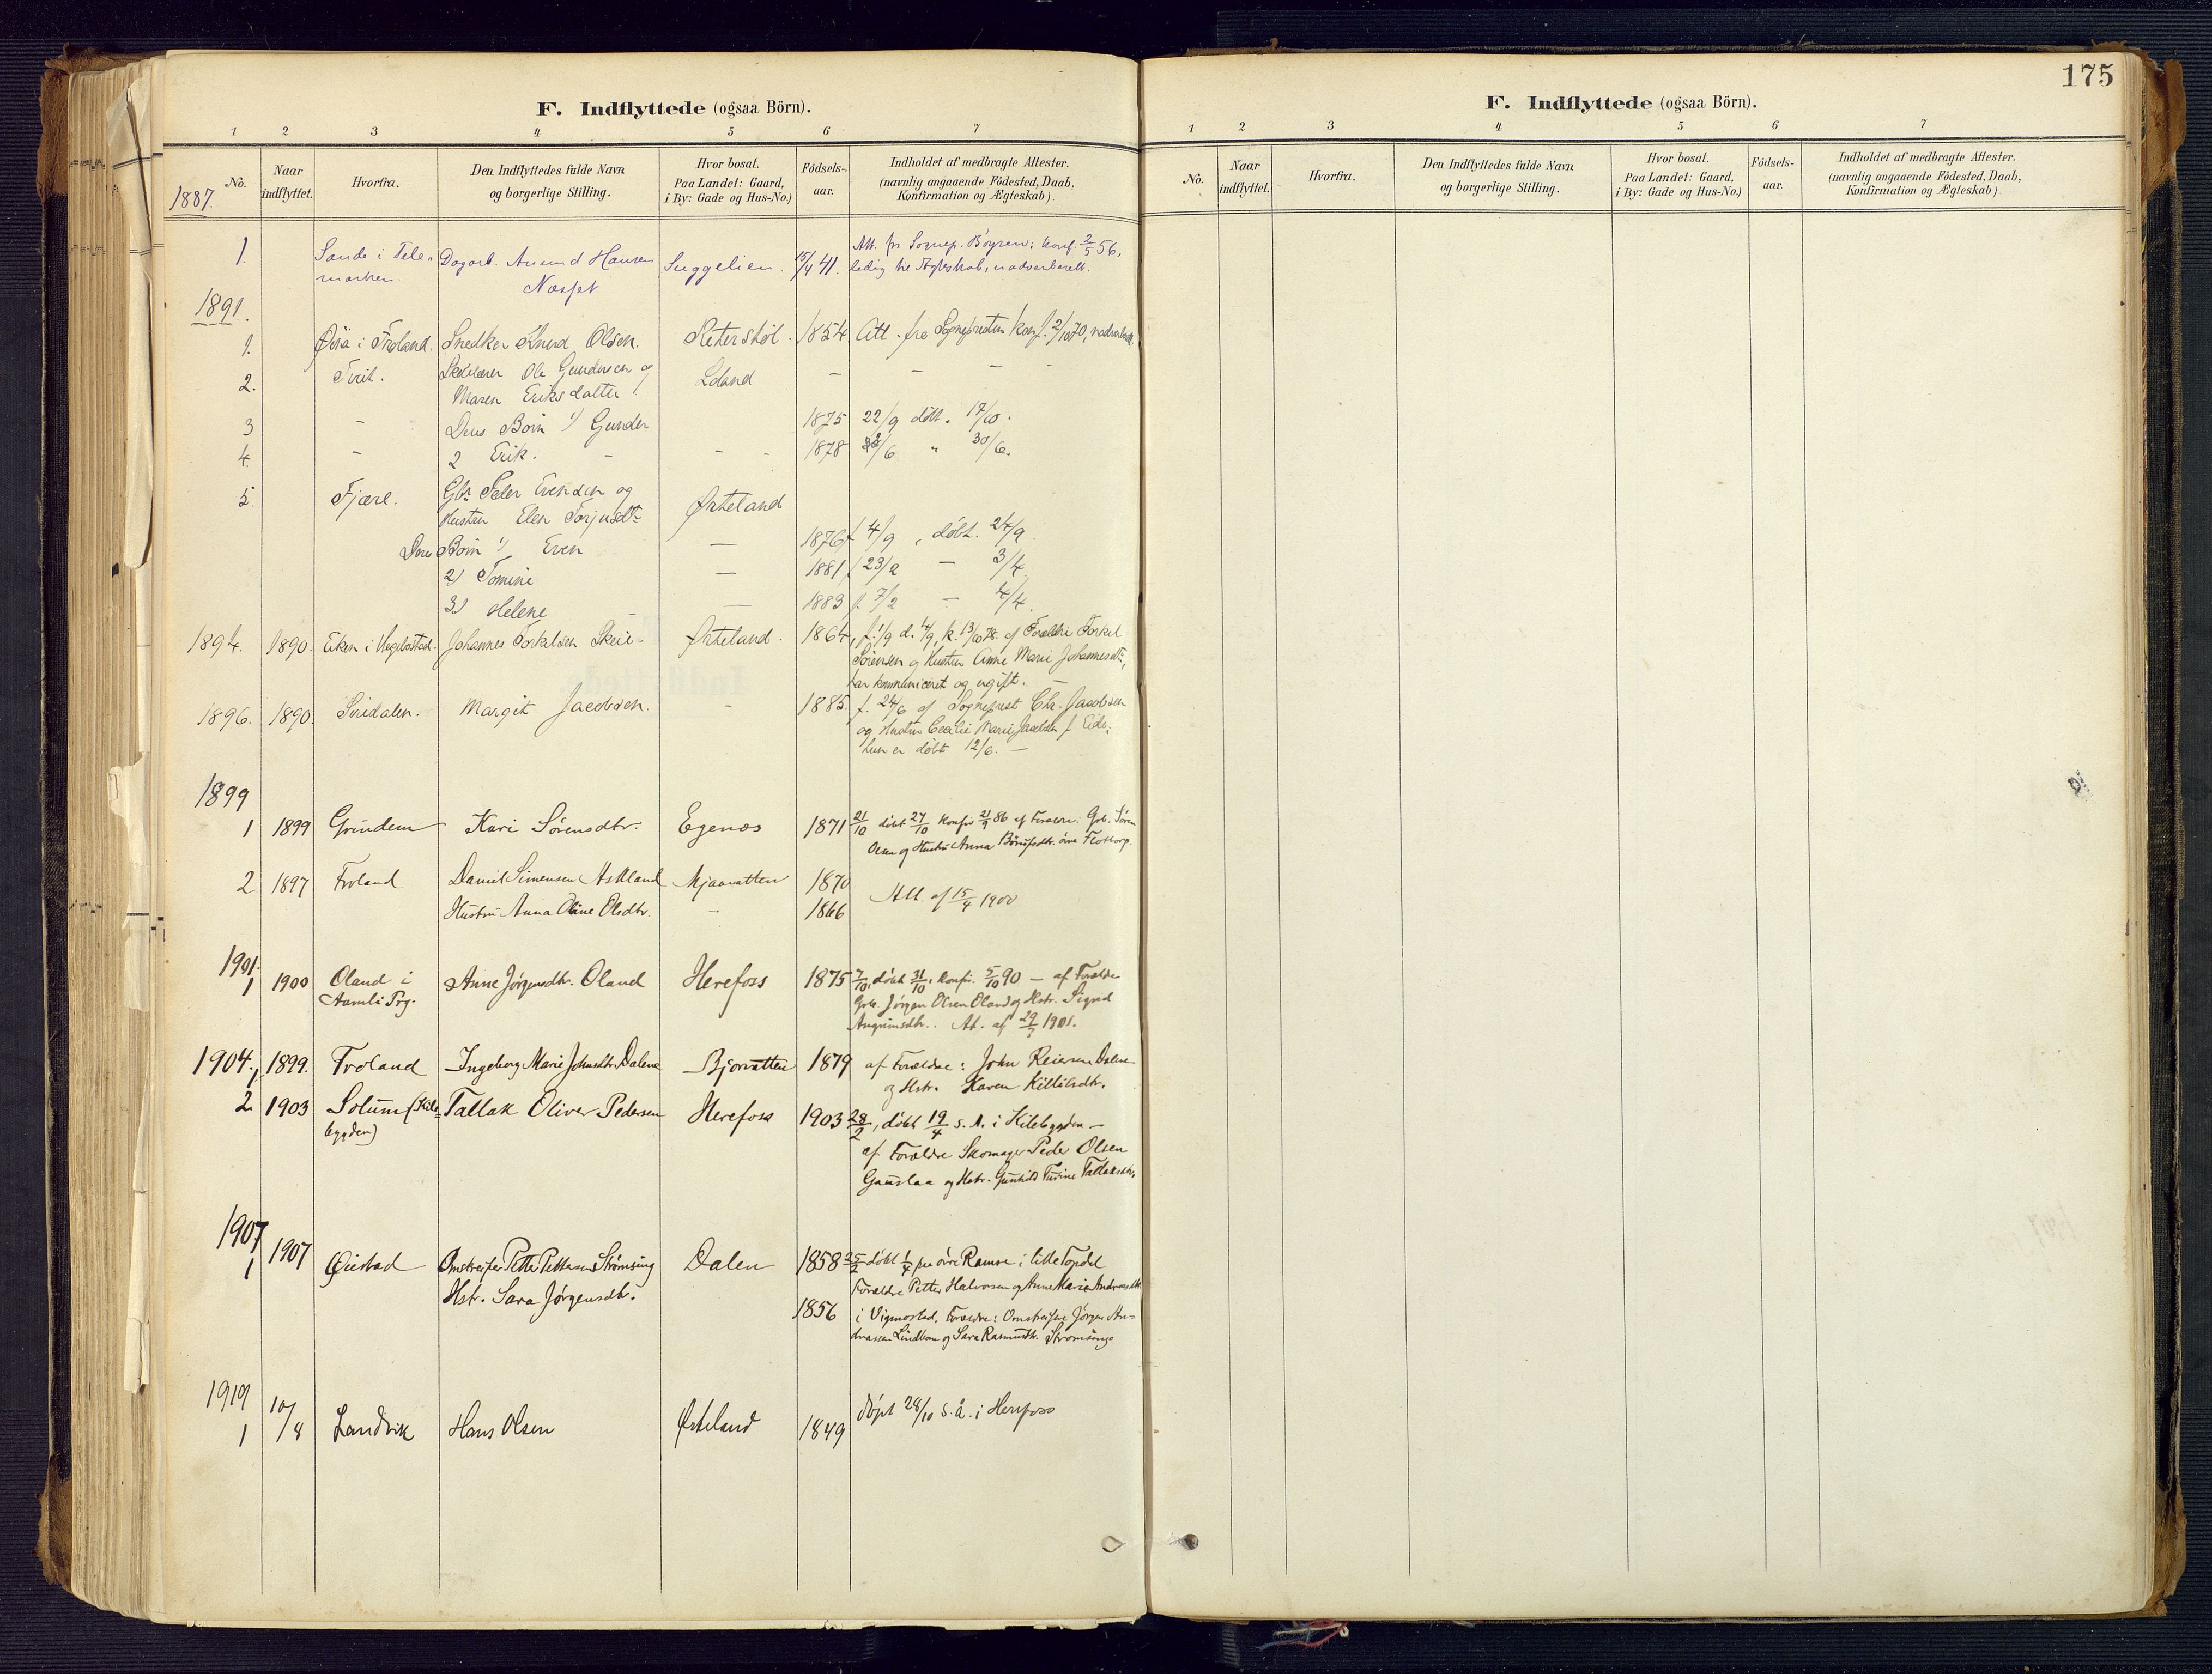 F. Indflyttede (ogsaa Börn).
1 2 3 4 5 6 7
No. Naar indflyttet. Hvorfra. Den Indflyttedes fulde Navn og borgerlige Stilling. Hvor bosat. Paa Landet: Gaard, i By: Gade og Hus-No.) Födsels-aar. Indholdet af medbragte Attester. (navnlig angaaende Födested, Daab, Konfirmation og Ægteskab).
1887.
1. Sande i Tele- Dagarb. Anund Hansen Suggelien. 15/4 41. Att. fra Sognep. Boysen; konf. 2/5 56,
marken. Næsset ledig til Ægteskab, nadverberett.
1891.
1. i Froland. Snedker Knud Olsen. 1854. Att. fra Sognepresten konf. 2/10 70,
2. Tveit. Ole Gundersen og Løland — — — —
Maren Eriksdatter
3 - Deres Børn 1) Gunder 1875 22/9 døbt. 17/10.
4. - 2 Erik. - - - 1878 /6 " 30/6.
5. Fjære. Gbr Peder Evensen og Ørteland
Hustru Elen Torjusdtr
Deres Børn 1) Even — 1876 f 4/9, døbt. 24/9.
2) Tomine — 1881 f 23/2 — 3/4
3) Helene — 1883 f. 7/2 — 4/4.
1894. 1890. Eiken i Hægebostad. Johannes Torkelsen Skeie. Ørteland. 1864, f. 1/9 d. 4/9, k. 13/10 78. af Forældre Torkel
Sørensen og Hustru Anne Marie Johannesdtr,
har kommuniceret og ugift. -
1896. 1890. Siredalen. Margit Jacobsen. - 1885. f. 24/6 af Sogneprest Chr. Jacobsen
og Hustru Cecilie Marie Jacobsen f. Eide;
hun er døbt 12/6. -
1899
1 1899 Grindem Kari Sørensdtr. Egenæs 1871 21/10 døbt 27/10 konfir 21/9 86 af Forældre: Grb. Søren
Olsen og Hustru Anna
2 1897 Froland Daniel Simensen Askland Mjaavatten 1870
Hustru Anna Oline Olsdtr. - 1866 Att. af 15/4 1900
1901.
1 1900 Oland i Anne Jørgensdtr. Oland Herefoss 1875 7/10, døbt 31/10, konfir. 5/10 90 — af Forældre
Aamli Prg. Grb. Jørgen Olsen Oland og Hstr. Signed
Asgrimsdtr.. At. af 29/7 1901.
1904. 1 1899. Froland Ingeborg Marie Johnsdtr. Dalene Bjorvatten 1879 af Forældre: John Reiersen Dalene
og Hstr. Karen Kittilsdtr.
2 1903 Solum (Kile- Tallak Oliver Pedersen Herefoss 1903 28/2, døbt 19/4 s. A. i Kilebygden —
bygden) af Forældre Skomager Peder Olsen
Gauslaa og Hstr. Gunhild Turine Tallaksdtr.
1907
1 1907 Øiestad Omstreifer Petter Pettersen Strømsing Dalen 1858 25/2 døbt 1/4 fra øvre Ramse i lille Topdal
Hstr. Sara Jørgensdtr. Forældre Petter Halvorsen og Anne Marie Andreasdtr.
1856 i Vigmostad, Forældre: Omstreifer Jørgen An-
dreassen Lindbom og Sara Rasmusdtr. Strømsing
1919 10/8
1 Landvik Hans Olsen Ørteland 1849 døpt 28/10 s. å. i Herefoss
175
F. Indflyttede (ogsaa Börn).
1 2 3 4 5 6 7
No. Naar indflyttet. Hvorfra. Den Indflyttedes fulde Navn og borgerlige Stilling. Hvor bosat. Paa Landet: Gaard, i By: Gade og Hus-No.) Födsels-aar. Indholdet af medbragte Attester. (navnlig angaaende Födested, Daab, Konfirmation og Ægteskab)